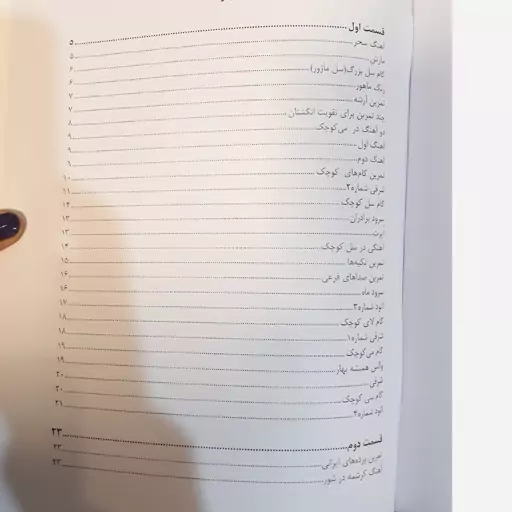 قسمت اول ........ ۵
آهنگ سحر ........ ۵
مارش ........ ۶
گام سل بزرگ(سل ماژور) ........ ۶
رنگ ماهور ........ ۷
تمرین آرشه ........ ۷
چند تمرین برای تقویت انگشتان ........ ۸
دو آهنگ در می‌کوچک ........ ۹
آهنگ اول ........ ۹
آهنگ دوم ........ ۹
تمرین گام‌های کوچک ........ ۱۰
شرقی شماره۲ ........ ۱۱
گام سل کوچک ........ ۱۲
سرود برادران ........ ۱۳
........ ۱۳
آهنگی در سل کوچک ........ ۱۴
تمرین تکیه‌ها ........ ۱۵
تمرین صداهای فرعی ........ ۱۶
سرود ماه ........ ۱۶
اتود شماره۳ ........ ۱۷
گام لای کوچک ........ ۱۸
شرقی شماره۱ ........ ۱۸
گام می‌کوچک ........ ۱۹
والس همیشه بهار ........ ۱۹
شرقی ........ ۲۰
گام سی کوچک ........ ۲۰
اتود شماره۴ ........ ۲۱
قسمت دوم ........ ۲۳
تمرین پرده‌های ایرانی ........ ۲۳
آهنگ کرشمه در شور ........ ۲۳